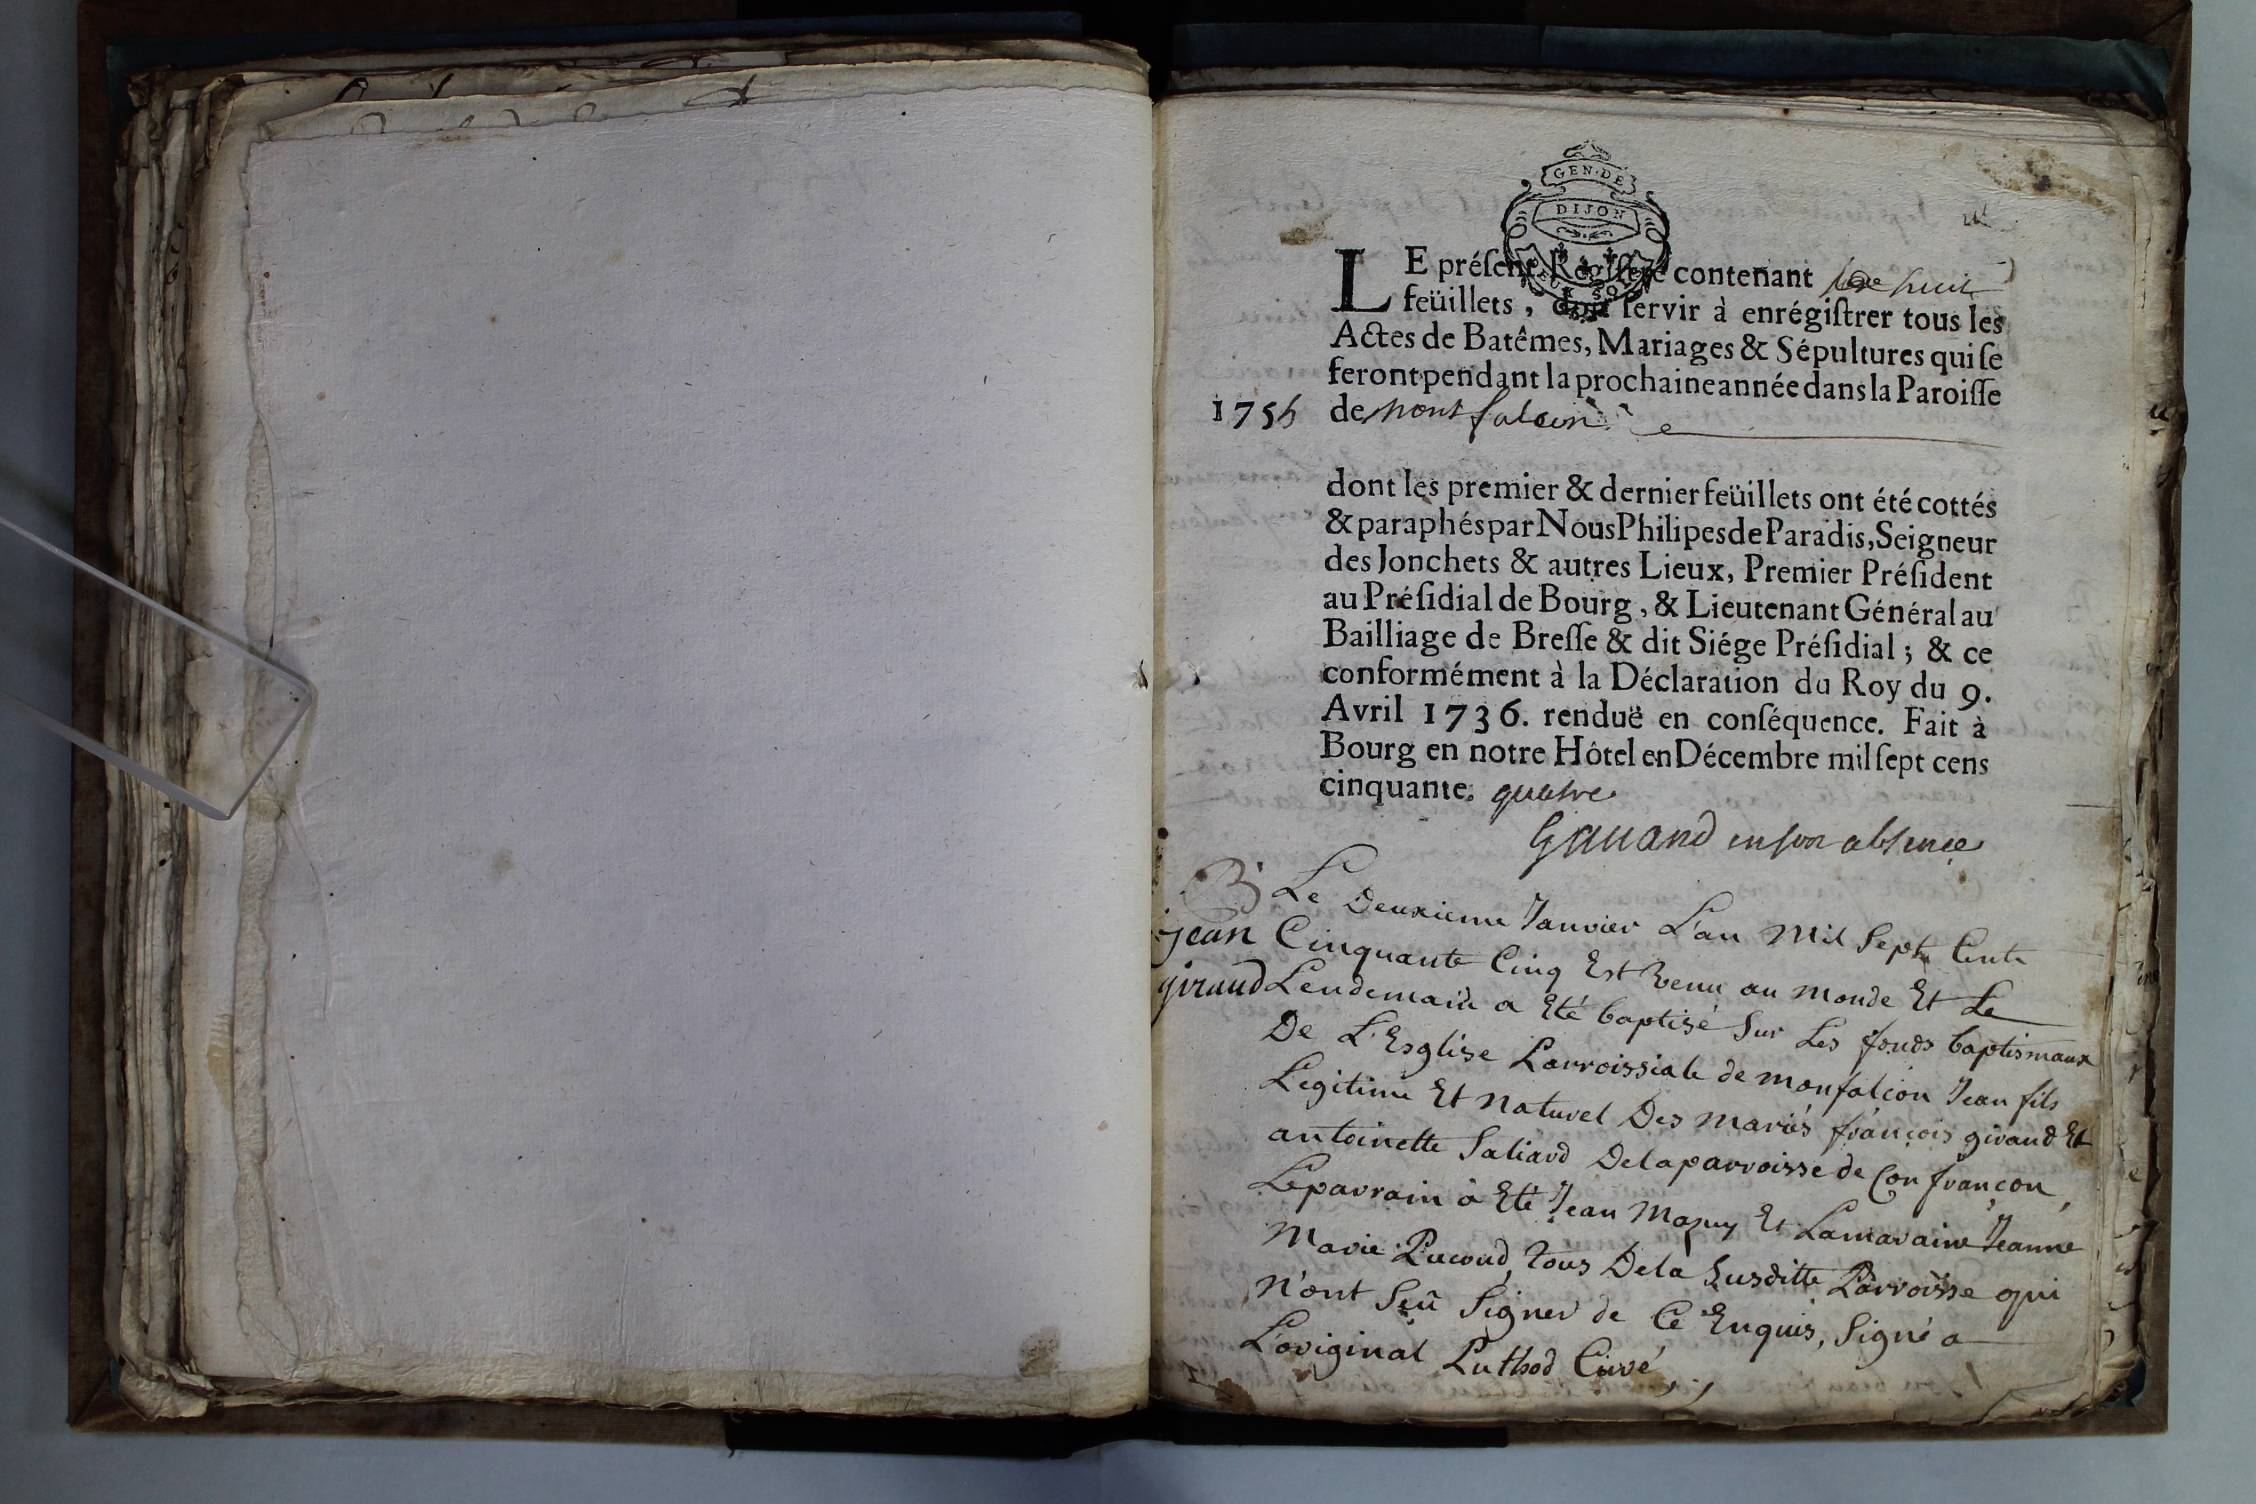 GEN·DE
DIJON
DEUX SOLS
LE préſent Regiſtre contenant huit
feüillets, doit ſervir à enrégiſtrer tous les
Actes de Batêmes, Mariages & Sépultures qui ſe
feront pendant la prochaine année dans la Paroiſſe
1755 de montfalcon
dont les premier & dernier feüillets ont été cottés
& paraphés par Nous Philipes de Paradis, Seigneur
des Jonchets & autres Lieux, Premier Préſident
au Préſidial de Bourg, & Lieutenant Général au
Bailliage de Breſſe & dit Siége Préſidial ; & ce
conformément à la Déclaration du Roy du 9.
Avril 1736. renduë en conſéquence. Fait à
Bourg en notre Hôtel en Décembre mil ſept cens
cinquante. quatre
en son absence
B
jean
giraud
Le Deuxieme Janvier L'an Mil Sept Cent
Cinquante Cinq Est Venu au monde Et Le
Lendemain a Eté baptisé Sur Les fonds baptismaux
De L'Esglise Parroissiale de monfalcon Jean fils
Legitime Et Naturel Des mariés françois giraud Et
antoinette Saliard De la parroisse de Confrançon,
Le parrain à Eté Jean Et La maraine Jeanne
Marie Pucoud, tous De la Susditte Parroisse qui
N'ont Sçû Signer de Ce Enquis, Signé a
L'original Luthod Curé